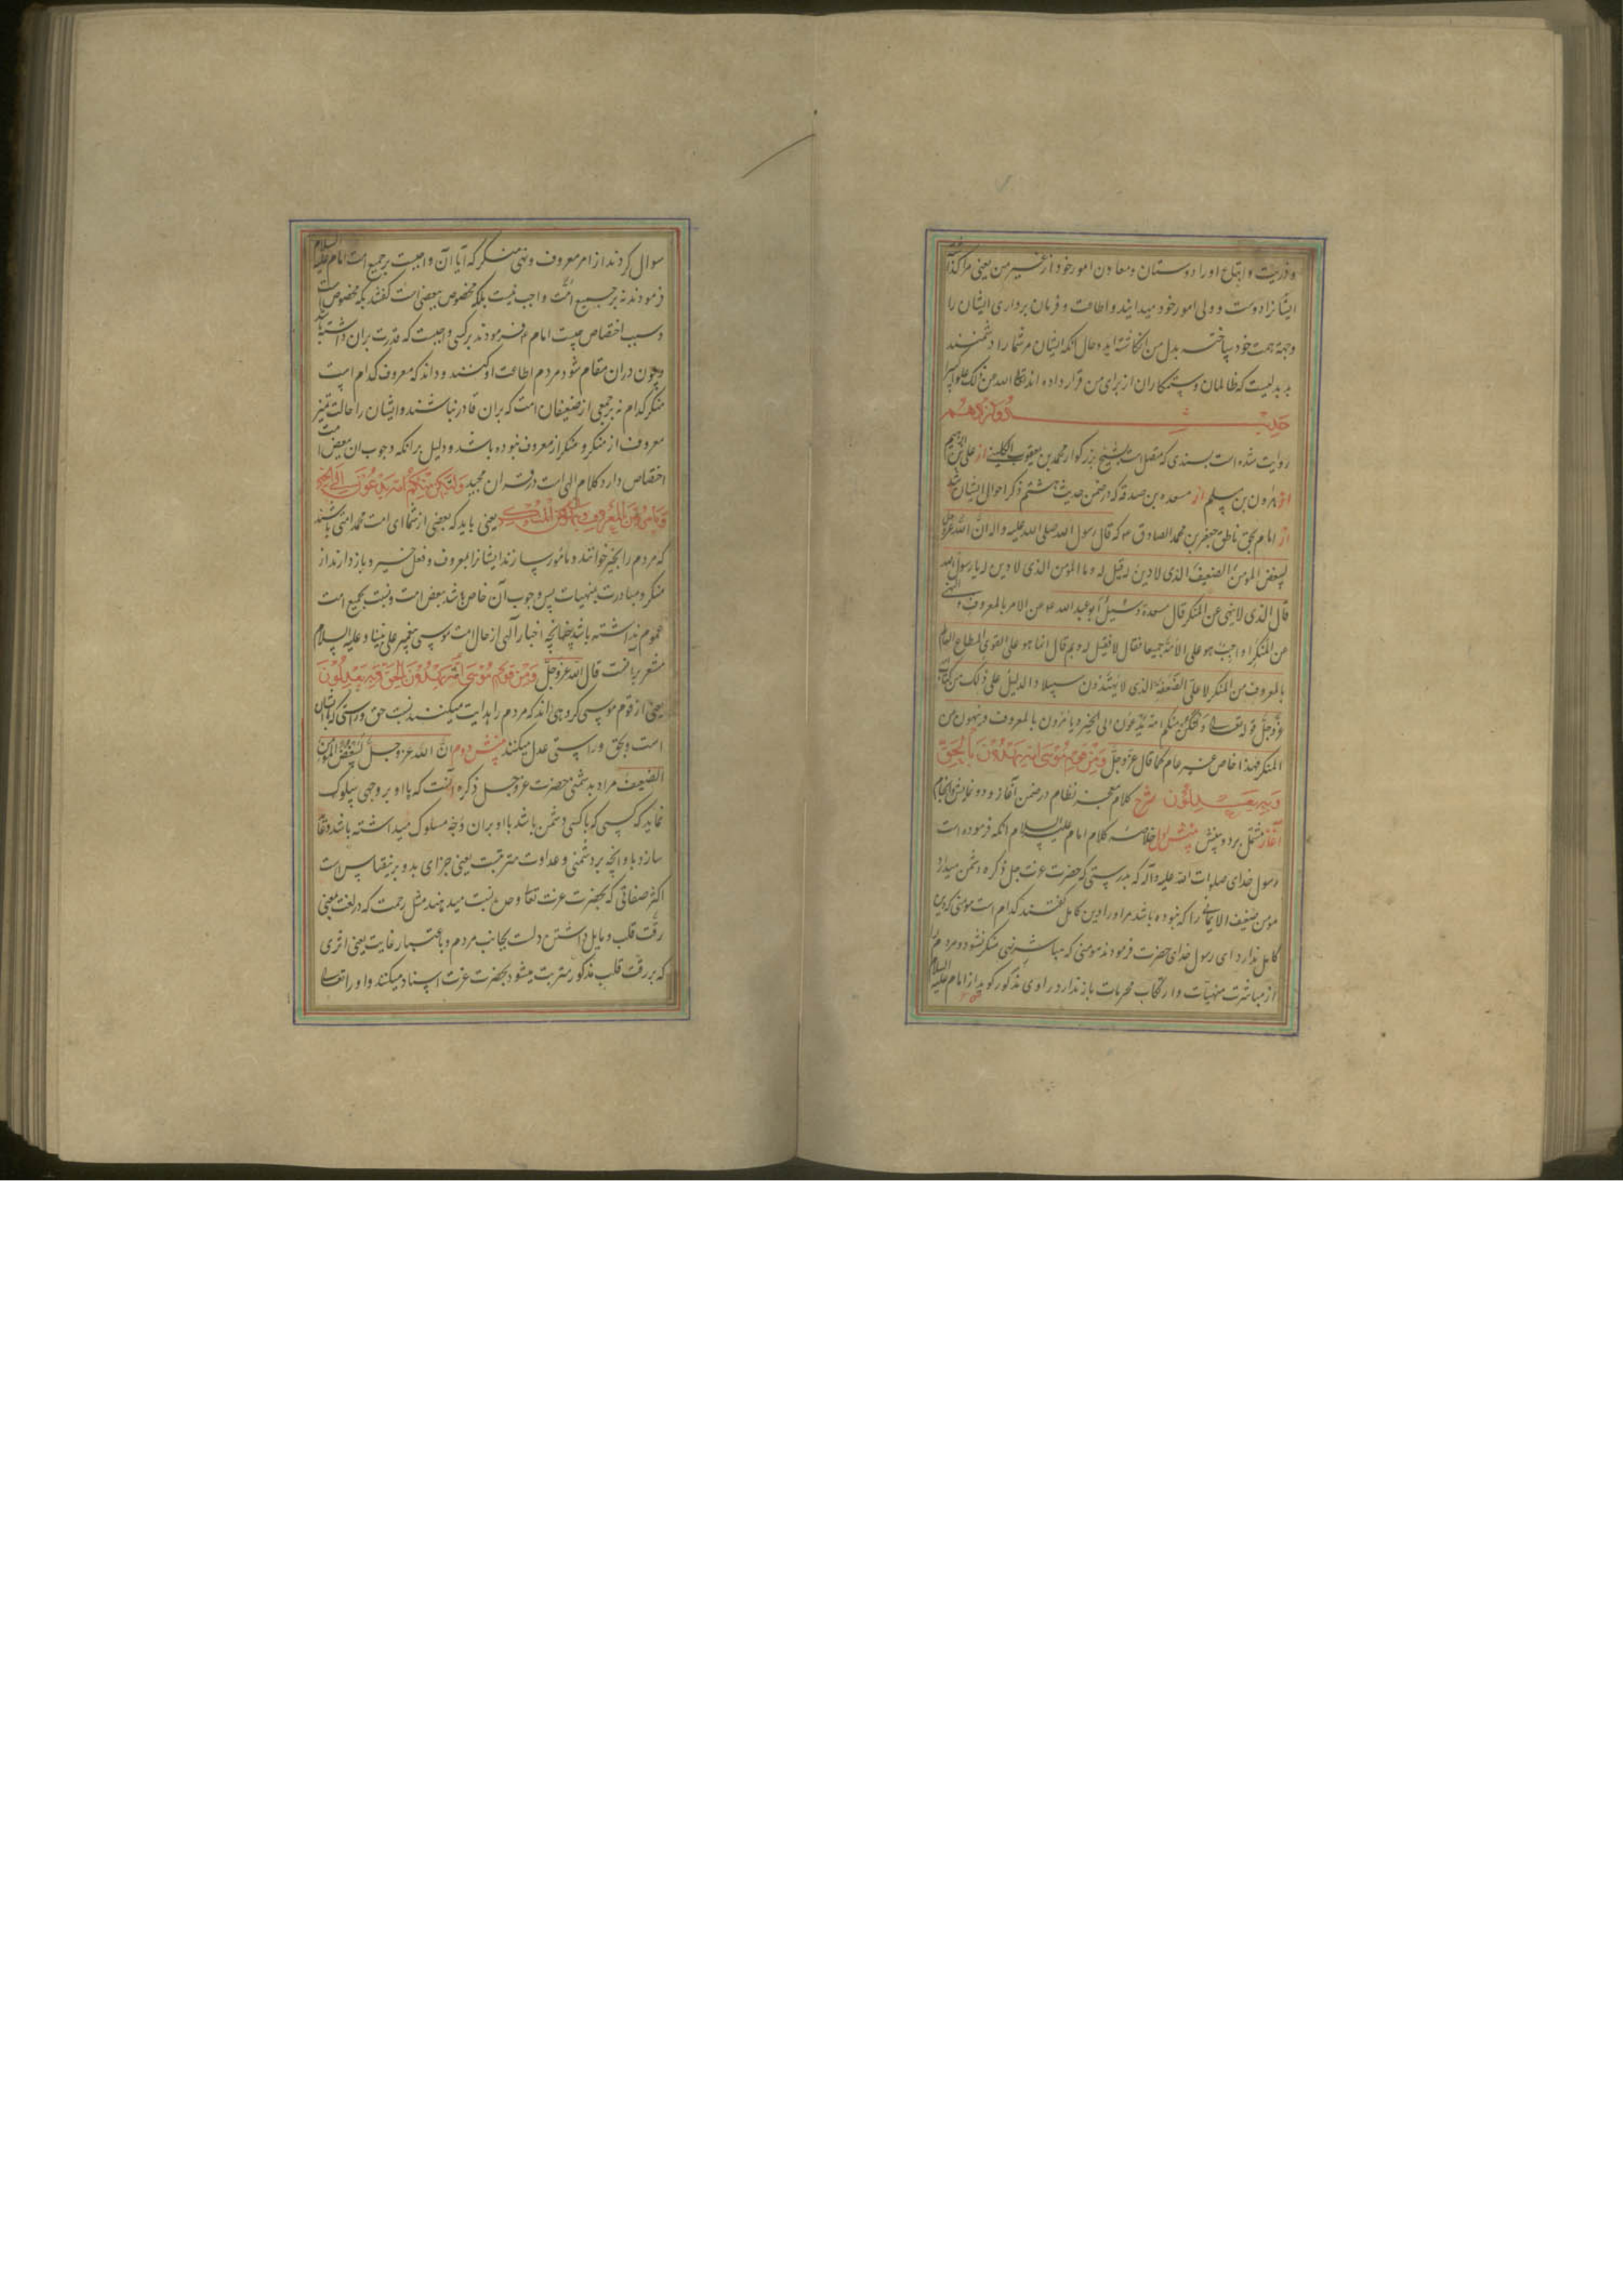 و ذریت و اتباع او را دوستان و معاون امور خود از غیر من یعنی مرا گذاشته
ایشانرا دوست و ولی امور خود میدانید و اطاعت و فرمان برداری ایشان را
وجهه همت خود ساخته بدل من انگاشته‌اید و حال آنکه ایشان مر شما را دشمنند
بد بدلیست که ظالمان و ستمکاران از برای من قرار داده‌اند تعالی الله من ذلک علوا کبیرا
حدیث دوازدهم
روایت شده است بسندی که متصل است بشیخ بزرگوار محمد بن یعقوب الکلینی از علی بن ابراهیم
از هارون بن مسلم از مسعده بن صدقه که در ضمن حدیث هشتم ذکر احوال ایشان شد
از امام بحق ناطق جعفر بن محمد الصادق ع که قال رسول الله صلی الله علیه و اله ان الله عز و جل
لیبغض المومن الضعیف الذی لا دین له قیل له و ما المومن الذی لا دین له یا رسول الله
قال الذی لا ینهی عن المنکر قال مسعدة و سئل ابو عبد الله ع من الامر بالمعروف و النهی
عن المنکر ا واجب هو علی الامة جمیعا فقال لا فقیل له و لم قال انما هو علی القوی المطاع العالم
بالمعروف من المنکر لا علی الضعفة الذی لا یهتدون سبیلا و الدلیل علی ذلک من کتاب الله
عز و جل قوله تعالی و لتکن منکم امة یدعون الی الخیر و یامرون بالمعروف و ینهون عن
المنکر فهذا خاص غیر عام کما قال عز و جل و من قوم موسی امة یهدون بالحق
و به یعدلون شرح کلام معجز نظام در ضمن آغاز و دو نمایش و انجام
آغاز مشتمل بر دو بینش بینش اول خلاصه کلام امام علیه السلام انکه فرموده است
رسول خدای صلوات الله علیه و آله که بدرستی که حضرت عزت جل ذکره دشمن میدارد
مومن ضعیف الایمانی را که نبوده باشد مر او را دین کامل گفتند کدام است مومنی که دین
کامل ندارد ای رسول خدای حضرت فرمودند مومنی که مباشر نهی منکر نشود و مردم را
از مباشرت منهیات و ارتکاب محرمات باز ندارد راوی مذکور گوید از امام علیه السلام
سوال کردند از امر معروف و نهی منکر که آیا آن واجبست بر جمیع امت امام علیه السلام
فرمودند نه بر جمیع امت واجب نیست بلکه مخصوص ببعضی است گفتند بکه مخصوص است
و سبب اختصاص چیست امام ع فرمودند بر کسی واجبست که قدرت بران داشته باشد
و چون دران مقام شود مردم اطاعت او کنند و داند که معروف کدام است
منکر کدام نه بر جمعی از ضعیفان امت که بران قادر نباشند و ایشان را حالت تمیز
معروف از منکر و منکر از معروف نبوده باشد و دلیل بر انکه وجوب ان ببعض امت
اختصاص دارد کلام الهی است در قران مجید و لتکن منکم امة یدعون الی الخیر
و یامرون بالمعروف و ینهون عن المنکر یعنی باید که بعضی از شما ای امت محمد امتی باشند
که مردم را بخیر خوانند و مامور سازند ایشانرا بمعروف و فعل خیر و باز دارند از
منکر و مبادرت بمنهیات پس وجوب آن خاص باشد ببعض امت و نسبت بجمیع امت
عموم نداشته باشد چنانچه اخبار آلهی از حال امت موسی پیغمبر علی نبینا و علیه السلام
مشعر برانست قال الله عز و جل و من قوم موسی امة یهدون بالحق و به یعدلون
یعنی از قوم موسی گروهی‌اند که مردم را هدایت میکنند بسبب حق و راستی که با ایشان
است و بحق و راستی عدل میکنند بینش دوم ان الله عز و جل لیبغض المومن
الضعیف مراد بدشمنی حضرت عز و جل ذکره آنست که با او بر وجهی سلوک
نماید که کسی که با کسی دشمن باشد با او بران وجه مسلوک میداشته باشد و عاید
سازد باو انچه بر دشمنی و عداوت مترتبست یعنی جزای بد و برینقیاس است
اکثر صفاتی که بحضرت عزت تعالی و جل نسبت میدهند مثل رحمت که در لغت بمعنی
رقت قلب و مایل داشتن دلست بجانب مردم و باعتبار غایت یعنی اثری
که بر رقت قلب مذکور مترتب میشود بحضرت عزت اسناد میکنند و او را تعالی